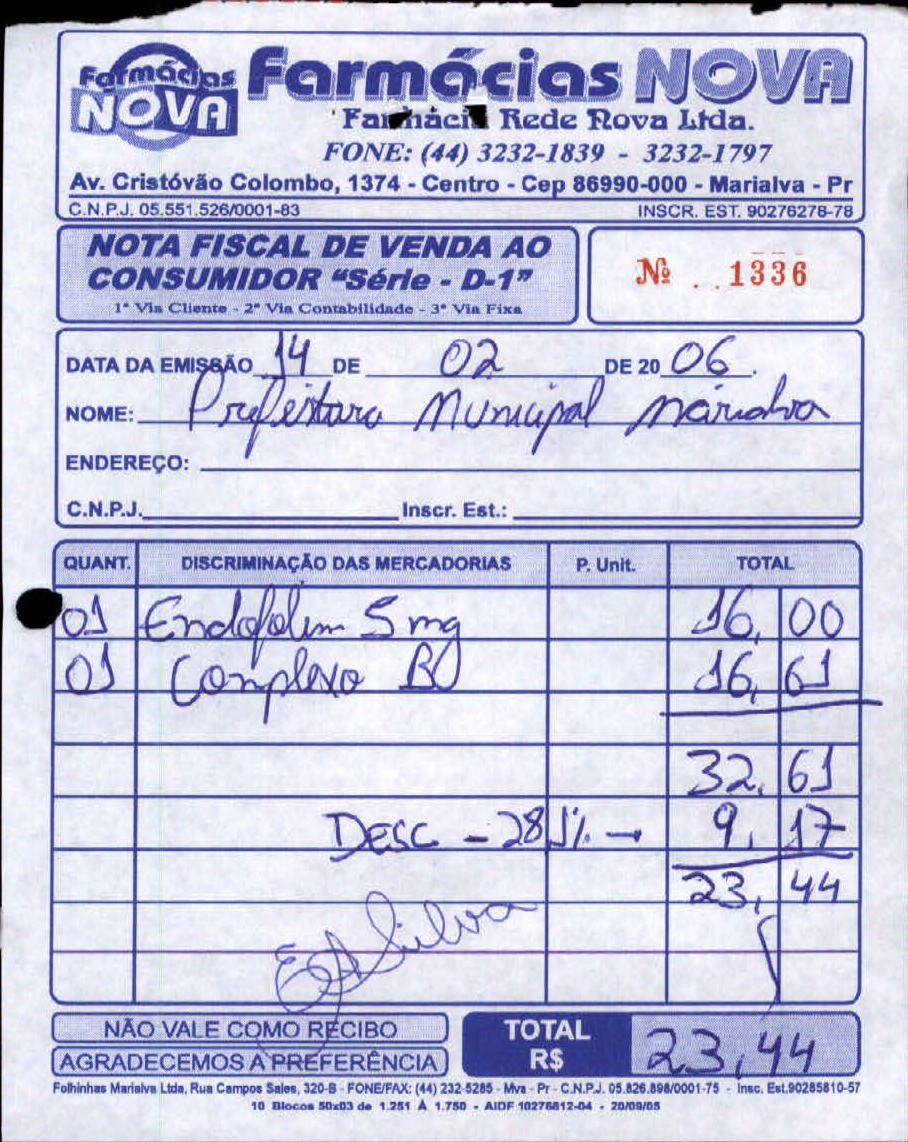 Farmácias
NOVA
Farmácias NOVA
Farmácia Rede Nova Ltda.
FONE: (44) 3232-1839 - 3232-1797
Av. Cristóvão Colombo, 1374 - Centro - Cep 86990-000 - Marialva - Pr
C.N.P.J. 05.551.526/0001-83 INSCR. EST. 90276278-78
NOTA FISCAL DE VENDA AO
CONSUMIDOR “Série - D-1”
1ª Via Cliente - 2ª Via Contabilidade - 3ª Via Fixa
Nº 1336
DATA DA EMISSÃO 14 DE 02 DE 20 06.
NOME: Prefeitura Municipal Marialva
ENDEREÇO:
C.N.P.J. Inscr. Est.:
QUANT. DISCRIMINAÇÃO DAS MERCADORIAS P. Unit. TOTAL
01 Endofolim 5 mg 16,00
01 Complexo B 16,61
32,61
DESC - 28% → 9,17
23,44
E A Silva
NÃO VALE COMO RECIBO
AGRADECEMOS A PREFERÊNCIA
TOTAL
R$ 23,44
Folhinhas Marialva Ltda, Rua Campos Sales, 320-B - FONE/FAX: (44) 232-5285 - Mva - Pr - C.N.P.J. 05.826.898/0001-75 - Insc. Est.90285810-57
10 Blocos 50x03 de 1.251 À 1.750 - AIDF 10276812-04 - 20/09/05